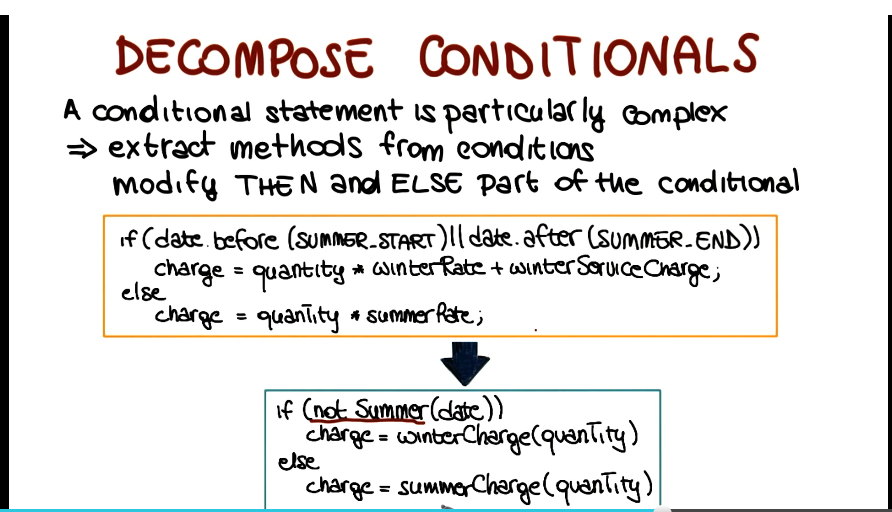 DECOMPOSE CONDITIONALS
A conditional statement is particularly complex
⇒ extract methods from conditions
modify THEN and ELSE part of the conditional
if (date.before (SUMMER_START) || date.after (SUMMER_END))
charge = quantity * winterRate + winterServiceCharge;
else
charge = quantity * summerRate;
if (not Summer (date))
charge = winterCharge (quantity)
else
charge = summerCharge (quantity)